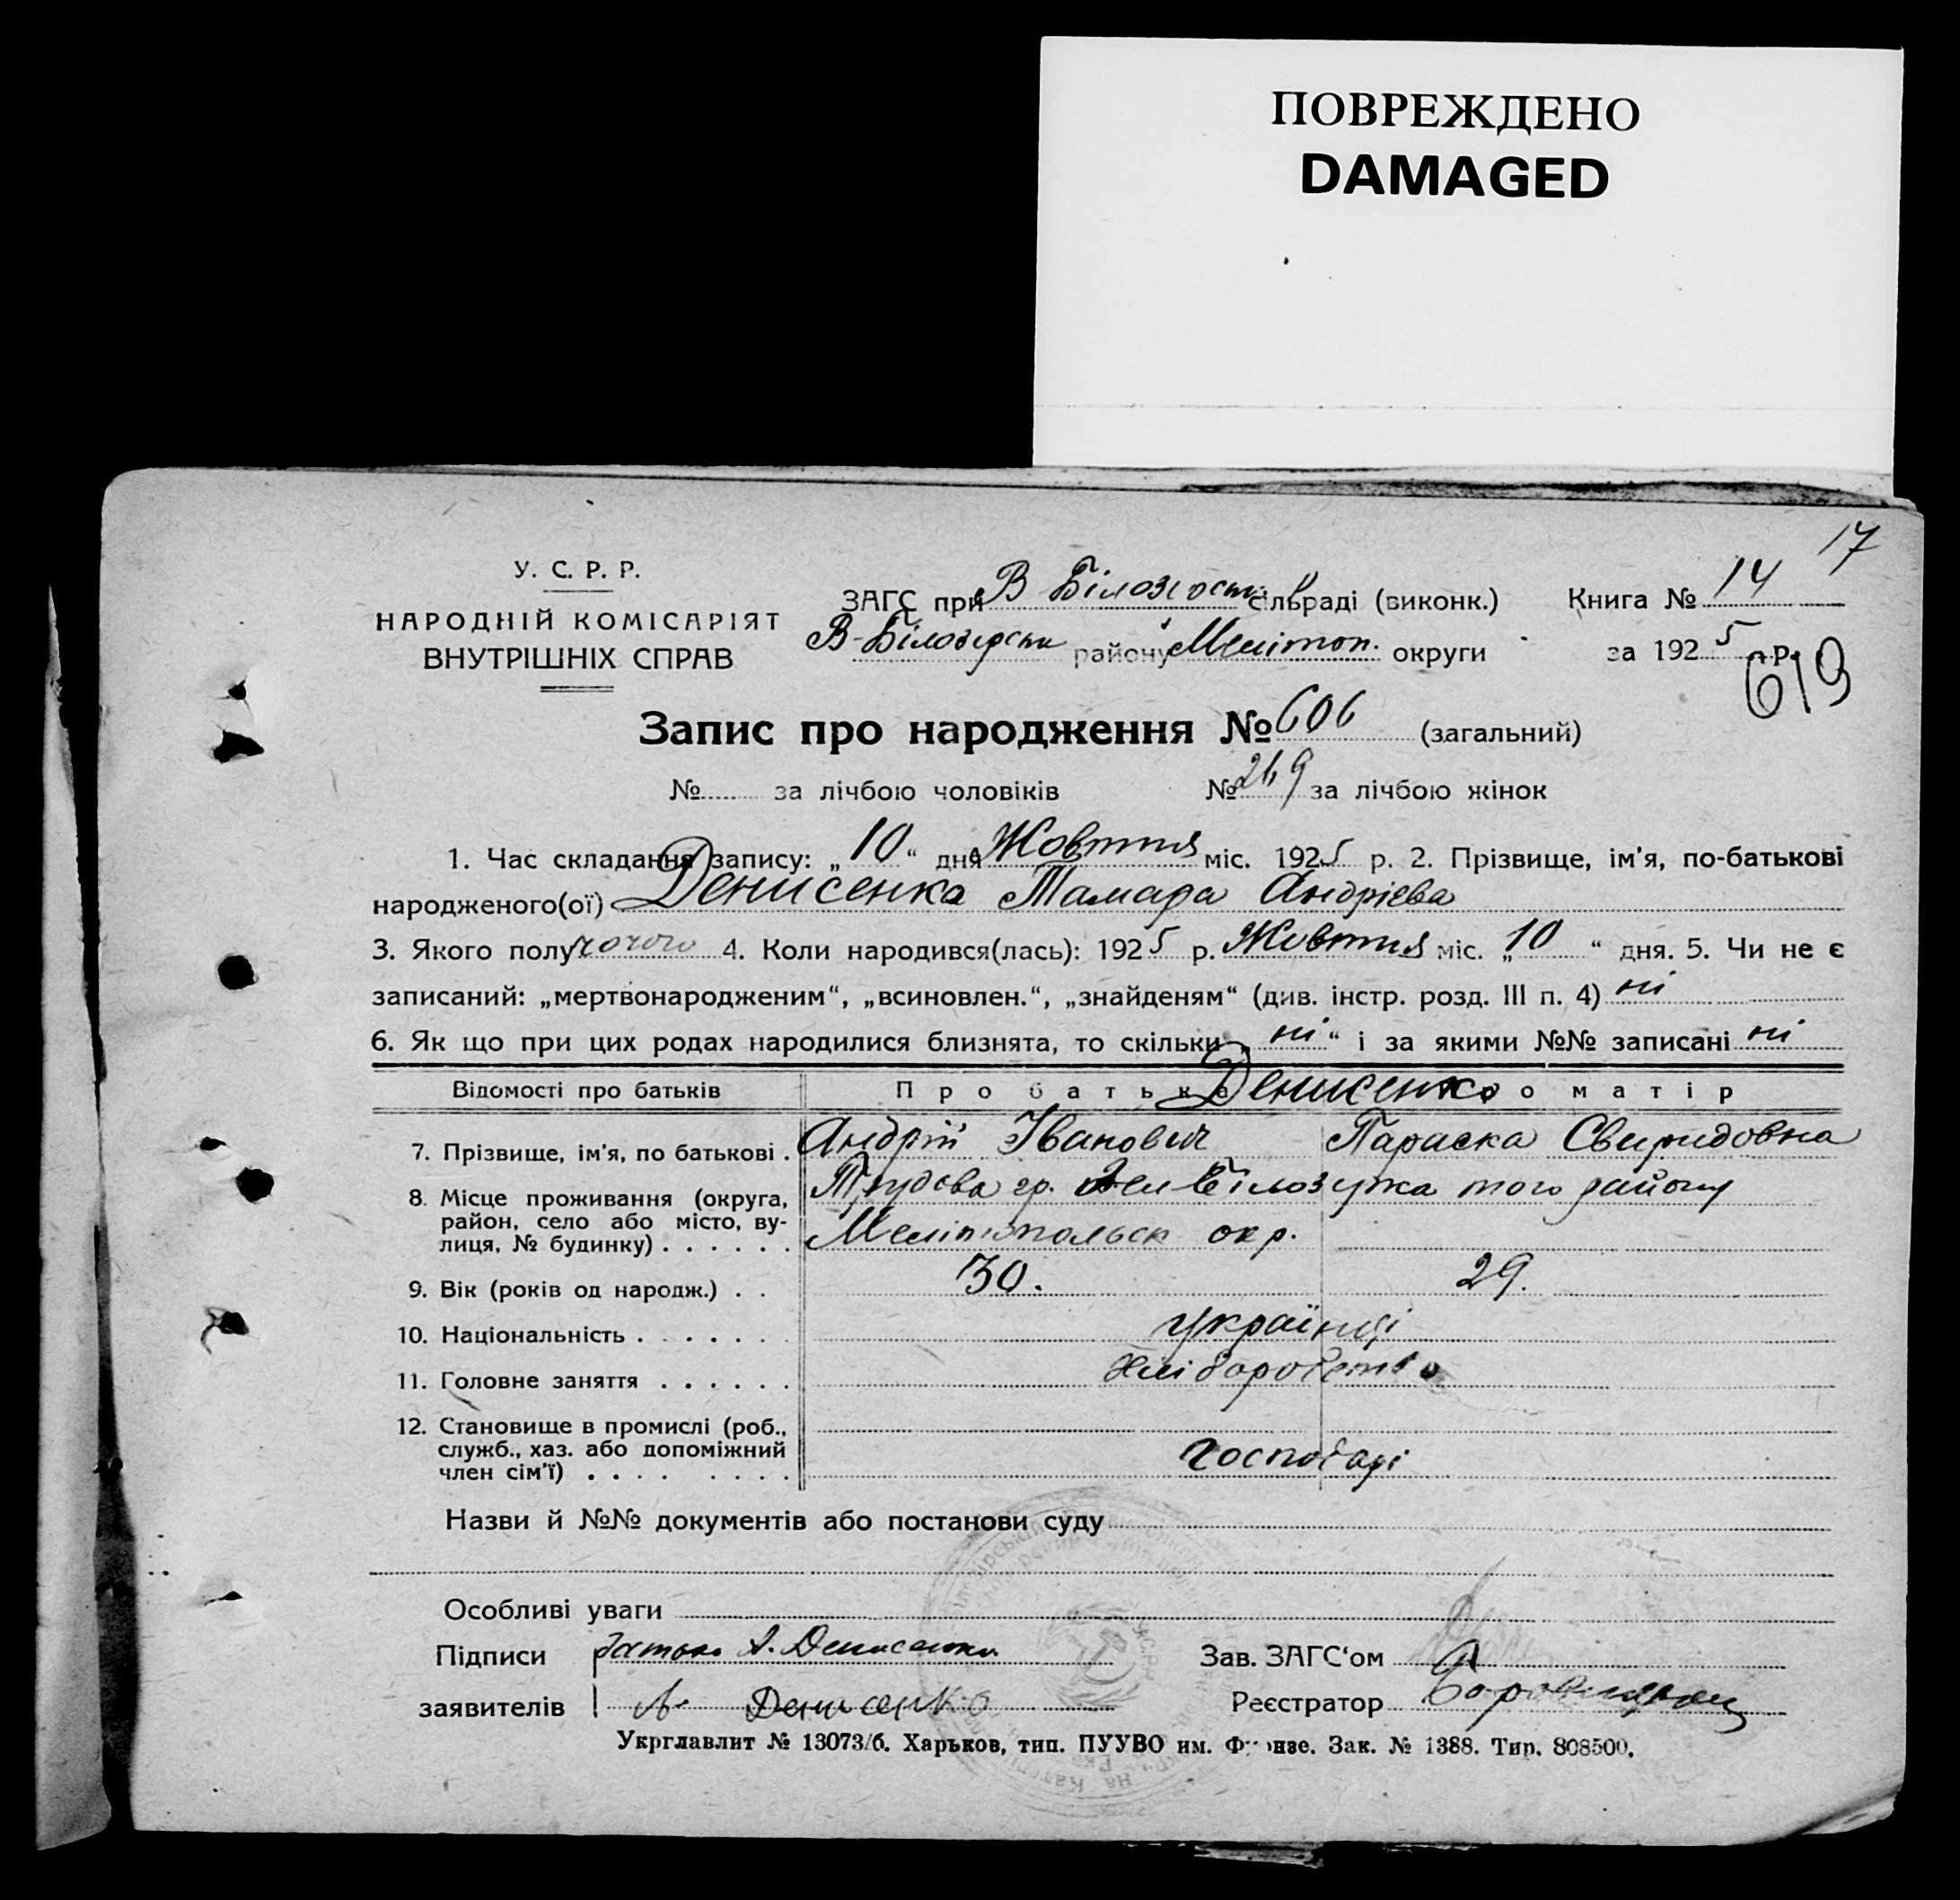 ПОВРЕЖДЕНО
DAMAGED
17
У. С. Р. Р.
НАРОДНІЙ КОМІСАРІЯТ
ВНУТРІШНІХ СПРАВ
ЗАГС при В Білозерськ сільраді (виконк.) Книга № 14
В-Білозерськ району Мелітоп. округи за 1925 р.
619
Запис про народження № 606 (загальний)
№ за лічбою чоловіків № 269 за лічбою жінок
1. Час складання запису: „10“ дня Жовтня міс. 1925 р. 2. Прізвище, ім'я, по-батькові
народженого(ої) Денисенко Тамара Андрієва
3. Якого полу 4. Коли народився(лась): 1925 р. Жовтня міс. „10“ дня. 5. Чи не є
записаний: „мертвонародженим“, „всиновлен.“, „знайденям“ (див. інстр. розд. III п. 4) ні
6. Як що при цих родах народилися близнята, то скільки „ні“ і за якими №№ записані ні
Відомості про батьків Про батька Денисенко Про матір
7. Прізвище, ім'я, по батькові . Андрій Іванович Параска Свиридовна
8. Місце проживання (округа, район, село або місто, вулиця, № будинку) . . . . . . Трудова гр. Вел Білозурка того району
Мелітопольськ окр.
9. Вік (років од народж.) . . 30. 29.
10. Національність . . . . . . . українці
11. Головне заняття . . . . . . хліборобство
12. Становище в промислі (роб.,
служб., хаз. або допоміжний
член сім'ї) . . . . . . . . господарі
Назви й №№ документів або постанови суду
Особливі уваги
Підписи батько А. Денисенко Зав. ЗАГС'ом
заявителів А. Денисенко Реєстратор
Укрглавлит № 13073/б. Харьков, тип. ПУУВО им. Фрунзе. Зак. № 1388. Тир. 808500.